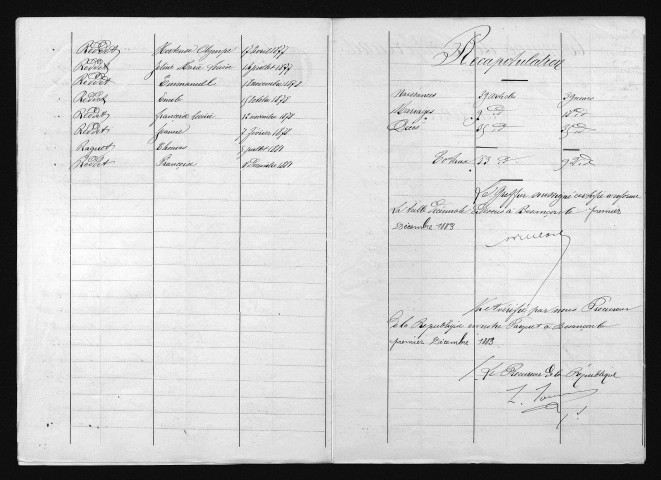 Revert Hortense Olympe 17 avril 1877
Revert Jules Marie Louis 14 juillet 1877
Revert Emmanuel 1 novembre 1878
Revert Emile 15 octobre 1878
Revert françois Louis 12 novembre 1878
Revert Jeanne 7 février 1878
Raguet Thomas juillet 1881
Revert Françoise 8 Décembre 1881
Récapitulation
Naissances 59 articles 59 noms
Mariages 9 do 18 do
Décès 35 do 35 do
Totaux do do
Le Greffier soussigné certifie conforme
La table Décennale Besançon le premier
Décembre 1883
Vu et vérifié par nous Procureur
de la République en notre Parquet à Besançon le
premier Décembre 1883
Le Procureur de la République